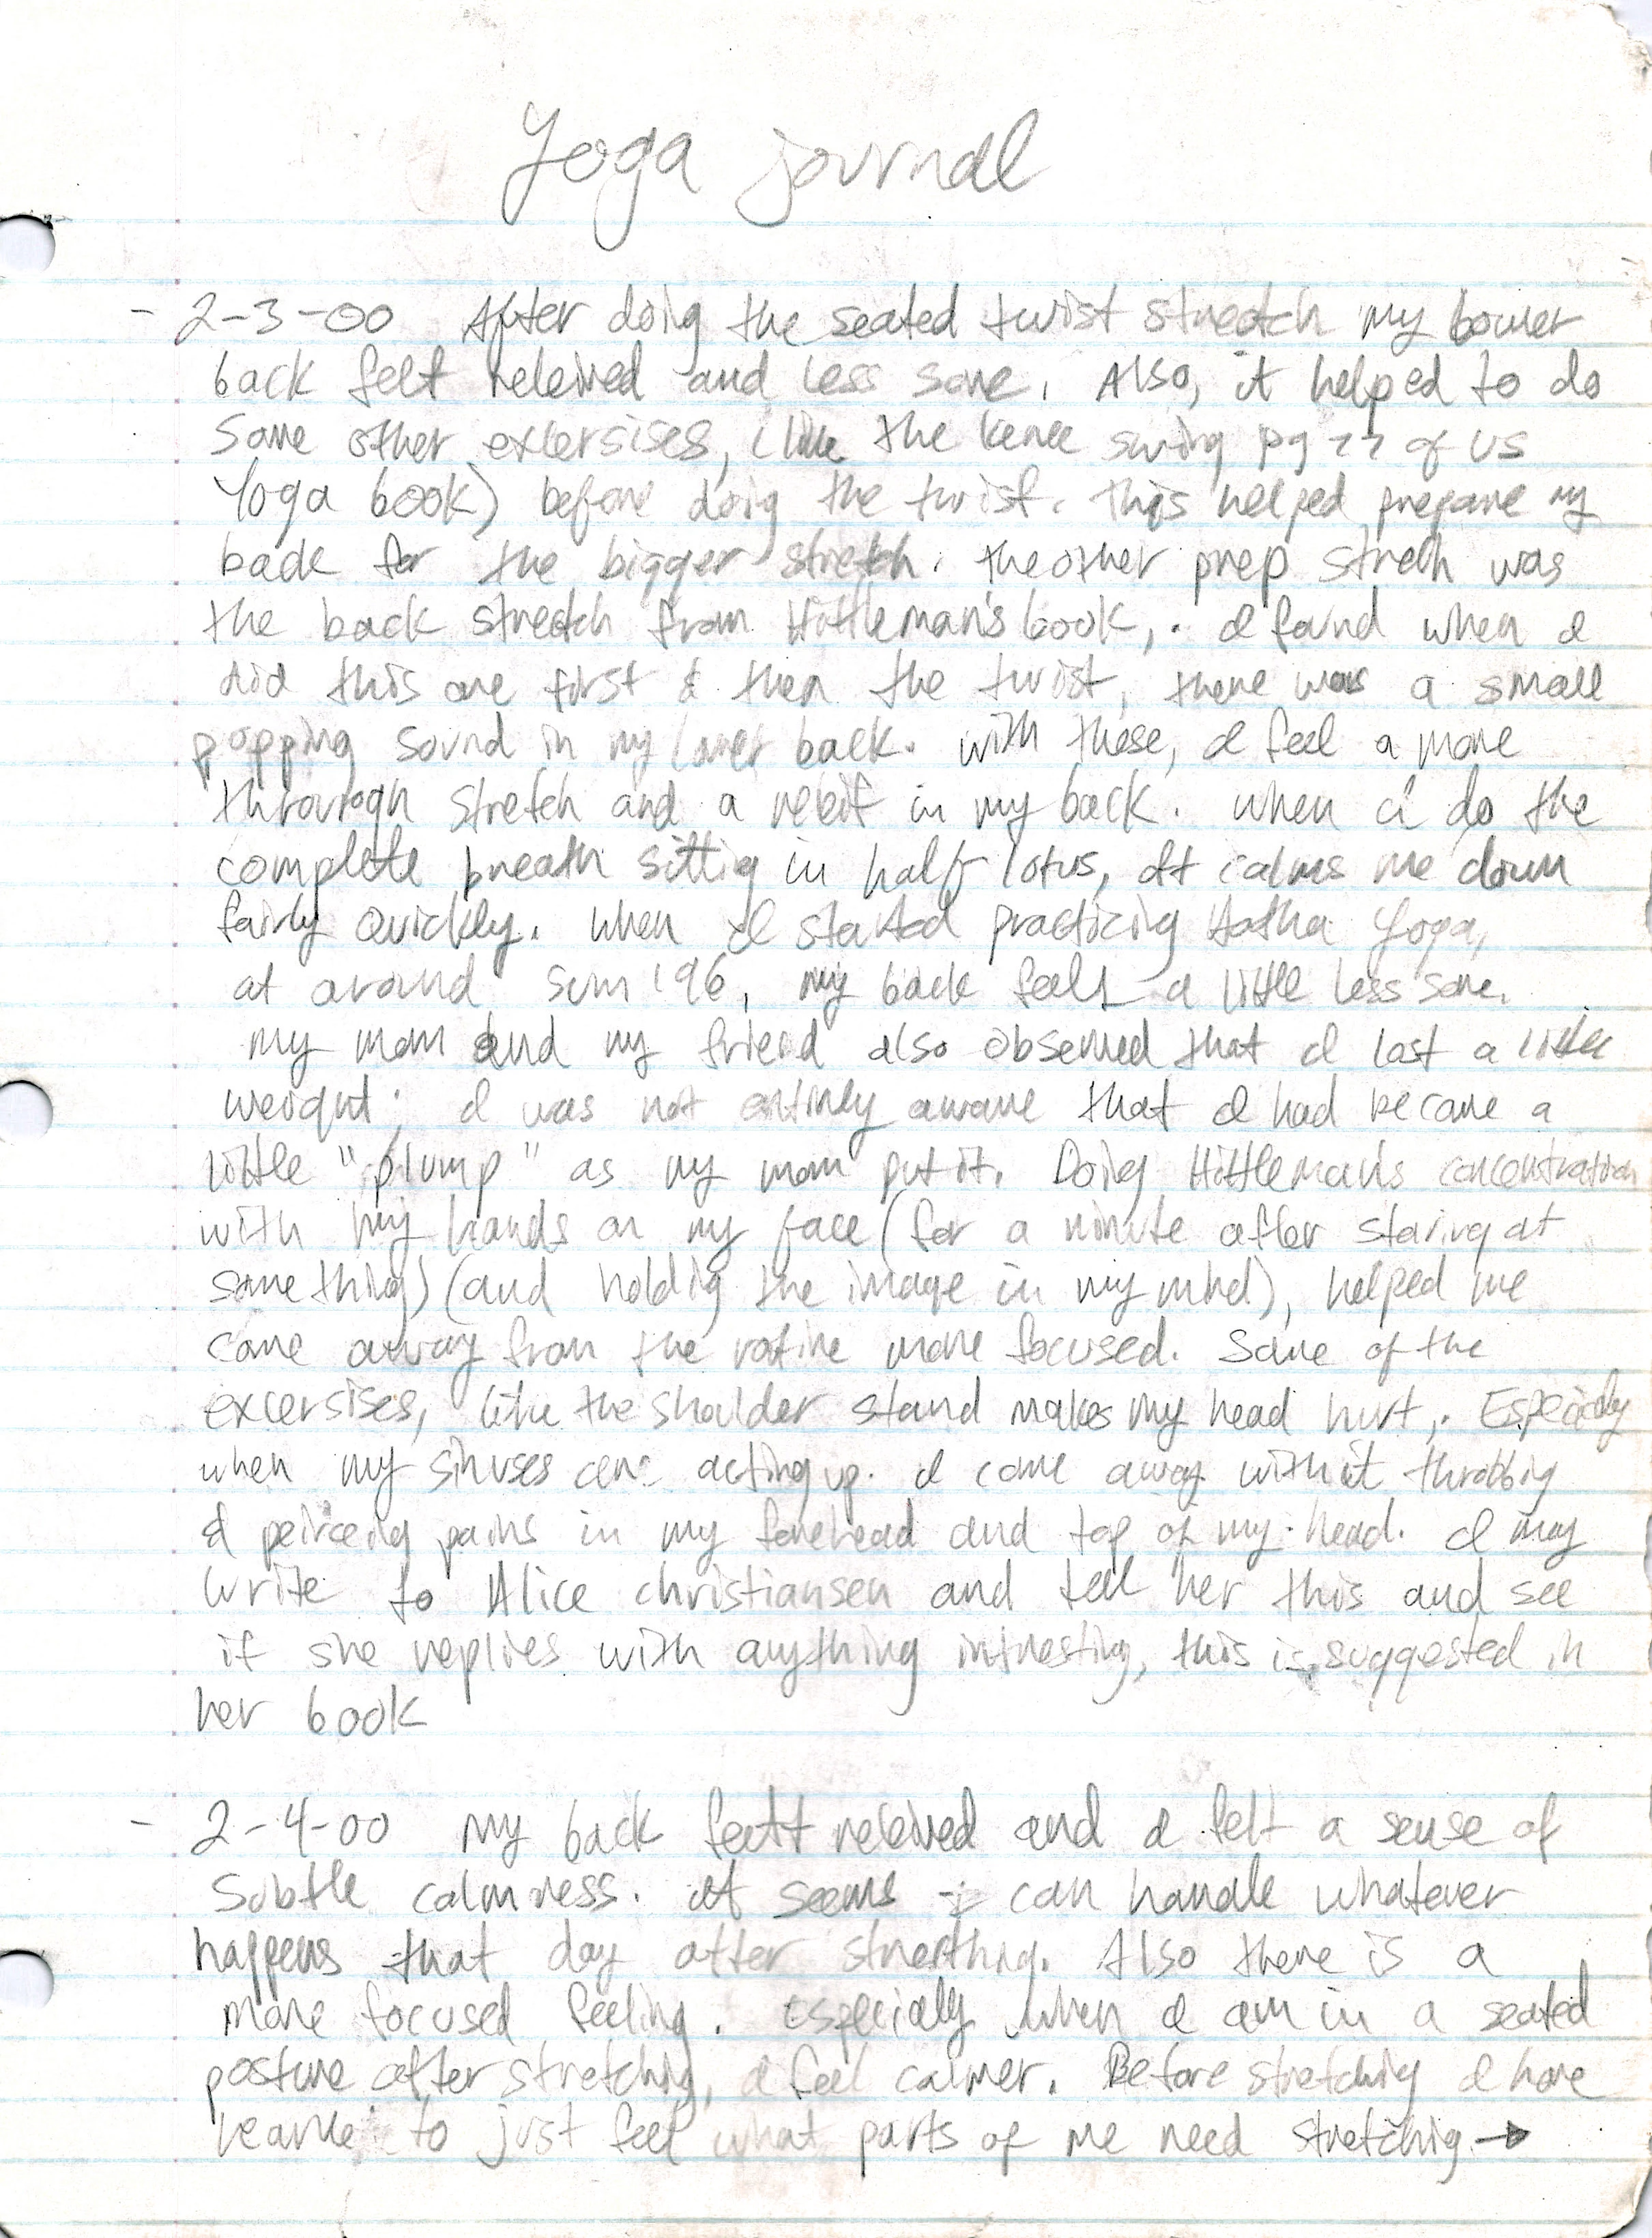 Yoga journal
- 2-3-00 After doing the seated twist stretch my lower
back felt releived and less sore. Also, it helped to do
some other excersises, (like the knee swing pg 22 of US
Yoga book) before doing the twist. This helped prepare my
back for the bigger stretch. The other prep streth was
the back stretch from Hittleman's book,. I found when I
did this one first & then the twist, there was a small
popping sound in my lower back. with these, I feel a more
through stretch and a releif in my back. When i do the
complete breath sitting in half lotus, It calms me down
fairly quickly. When I started practicing Hatha Yoga,
at around sum '96, my back feels a little less sore.
My mom and my friend also observed that I lost a little
weight; I was not entirely aware that I had became a
little "plump" as my mom put it. Doing Hittleman's concentration
with my hands on my face (for a minute after staring at
something) (and holding the image in my mind), helped me
come away from the rotine more focused. Some of the
excersises, like the shoulder stand makes my head hurt,. Especialy
when my sinuses are acting up. I come away with it throbbing
& peirceing pains in my forehead and top of my head. I may
write to Alice christiansen and tell her this and see
if she replies with anything intresting, this is suggested in
her book
- 2-4-00 My back felt releived and I felt a sense of
Subtle calmness. It seems I can handle whatever
happens that day after streething. Also there is a
more focused feeling. Especially when I am in a seated
posture after stretching, I feel calmer. Before stretching I have
to just feel what parts of me need stretching →